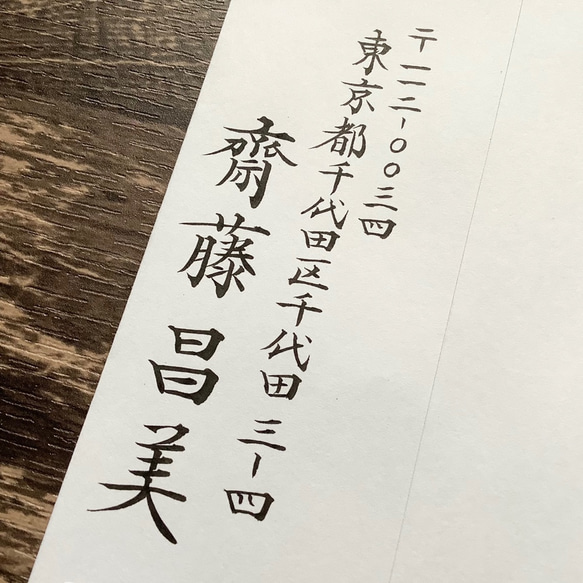 〒一一二-〇〇三四
東京都千代田区千代田三-四
齋藤昌美